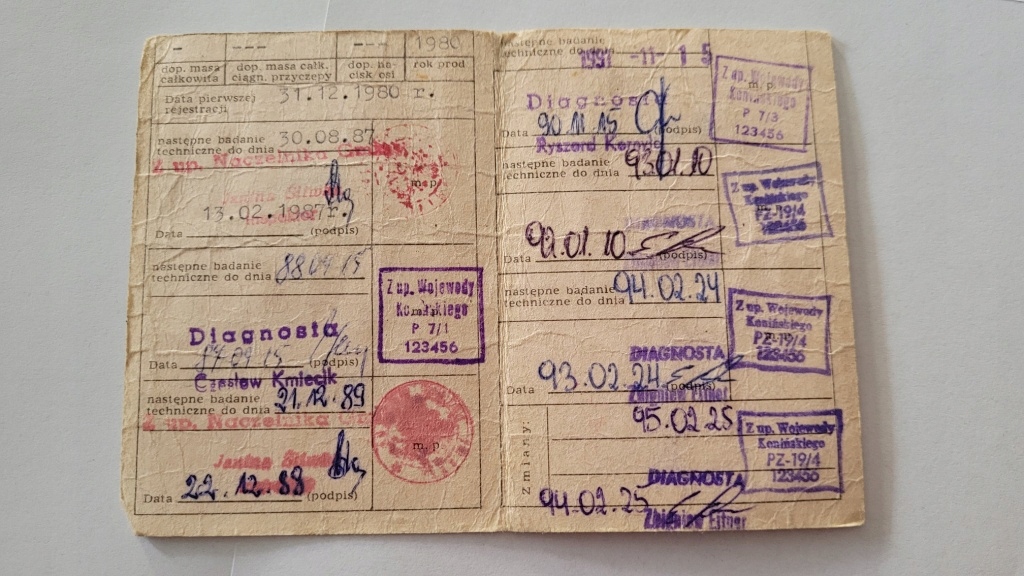 - --- --- 1980
dop. masa całkowita dop. masa całk. ciągn. przyczepy dop. nacisk osi rok prod
Data pierwszej rejestracji 31.12.1980 r.
następne badanie techniczne do dnia 30.08.87
Z up. Naczelnika
m. p.
13.02.1987r.
Data (podpis)
następne badanie techniczne do dnia 88 09 15
Z up. Wojewody
Konińskiego
P 7/1
123456
Diagnosta
Data 87 09 15 (podpis)
Czesław Kmiecik
następne badanie techniczne do dnia 21.12.89
Z up. Naczelnika
m. p.
Janina
Data 22.12.88 (podpis)
następne badanie techniczne do dnia 1991 -11- 15
Z up. Wojewody
m. p.
Konińskiego
P 7/3
123456
Diagnosta
Data 90.11.15 (podpis)
Ryszard
następne badanie techniczne do dnia 93.01.10
Z up. Wojewody
PZ-19/4
123456
DIAGNOSTA
Data 92.01.10 (podpis)
następne badanie techniczne do dnia 94.02.24
Z up. Wojewody
Konińskiego
PZ-19/4
123456
DIAGNOSTA
Data 93.02.24 (podpis)
Zbigniew Fitner
zmiany:
95.02.25
Z up. Wojewody
Konińskiego
PZ-19/4
123456
DIAGNOSTA
94.02.25
Zbigniew Fitner